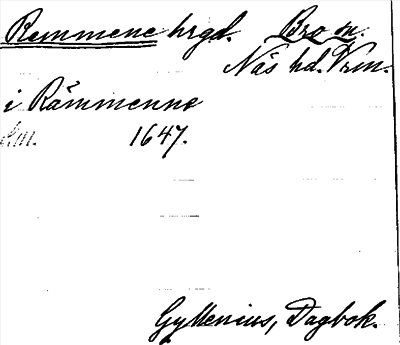 Remmene hrgd. Bro sn.
Näs hd. Vrm.
i Rämmenne
1647.
Gyllenius, Dagbok.